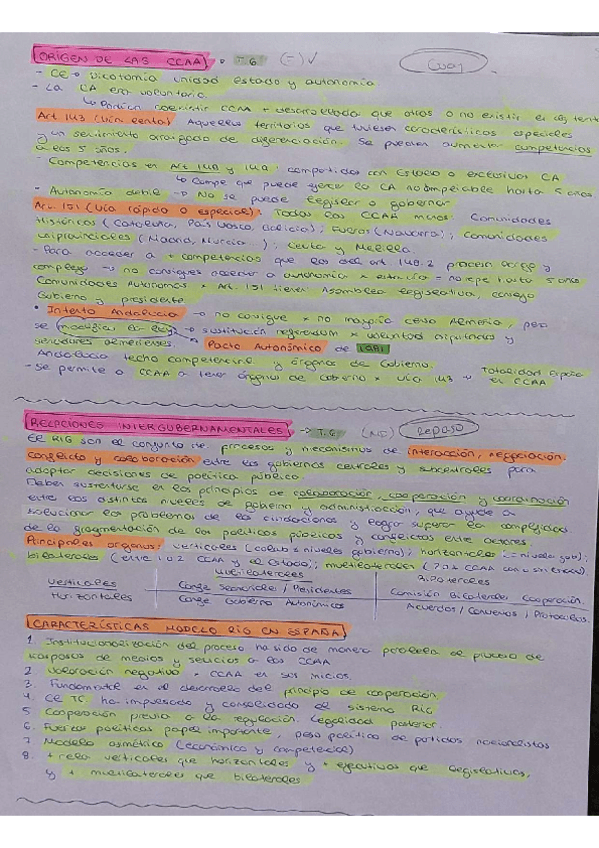 ORÍGEN DE LAS CCAA → T.6 (=) ✓
- CE → Dicotomía unidad estado y autonomía
- La CA era voluntaria.
↳ Podían coexistir CCAA + desarrollada que otros o no existir
Art 143 (Vía lenta) Aquellos territorios que tuviesen características especiales
y un sentimiento arraigado de diferenciación. Se pueden aumentar competencias
a los 5 años.
- Competencias en Art 148 y 149: compartidas con Estado o exclusivas CA
↳ Cumpe que puede ejercer la CA no ampliable hasta 5 años
- Autonomía debil → No se puede legislar o gobernar
Art 151 (Vía rápida o especial): Todas las CCAA menos: Comunidades
Históricas (Cataluña, País Vasco, Galicia); Fueros (Navarra); Comunidades
uniprovinciales (Madrid, Murcia...); Ceuta y Melilla.
- Para acceder a + competencias que las del art. 148.2 proceso largo y
complejo → no consigues acceder a autonomía x esta vía = no repe hasta 5 años
Comunidades Autónomas x Art. 151 tienen Asamblea legislativa, consejo
Gobierno y presidente
• Intento Andalucía → no consigue x no mayoría censo Almería, pero
se modifica la ley → sustitución referendum x voluntad diputados y
senadores almerienses. • Pacto Autonómico de 1981
Andalucía techo competencial y órganos de Gobierno.
- Se permite a CCAA a tener órganos de Gobierno x vía 143 → Totalidad España
el CCAA
RELACIONES INTERGUBERNAMENTALES → T.6 (NO) Repaso
Las RIG son el conjunto de procesos y mecanismos de interacción, negociación,
conflicto y colaboración entre los gobiernos centrales y subcentrales para
adoptar decisiones de política pública.
Deben sustentarse en los principios de colaboración, cooperación y coordinación
entre los distintos niveles de gobierno y administración, que ayude a
solucionar los problemas de los ciudadanos y lograr superar la complejidad
de la fragmentación de las políticas públicas y conflictos entre actores.
Principales órganos: verticales (colab ≠ niveles gobierno); horizontales (= nivel gob);
bilaterales (entre 1 o 2 CCAA y el Estado); multilaterales
Multilaterales Bilaterales
Verticales Confe Sectoriales / Presidentes Comisión Bilateral Cooperación
Horizontales Confe Gobierno Autonómicos Acuerdos / Convenios / Protocolos.
CARACTERÍSTICAS MODELO RIG EN ESPAÑA
1. Institucionalización del proceso ha sido de manera paralela al proceso de
traspasos de medios y servicios a las CCAA
2. Valoración negativa x CCAA en sus inicios.
3. Fundamental en el desarrollo del principio de cooperación
4. El TC ha impulsado y consolidado el sistema RIG
5. Cooperación previa a la regulación. Legalidad posterior.
6. Fuerzas políticas papel importante, peso político de partidos nacionalistas
7. Modelo asimétrico (económico y competencial)
8. + relac verticales que horizontales y + ejecutivas que legislativas,
y + multilaterales que bilaterales